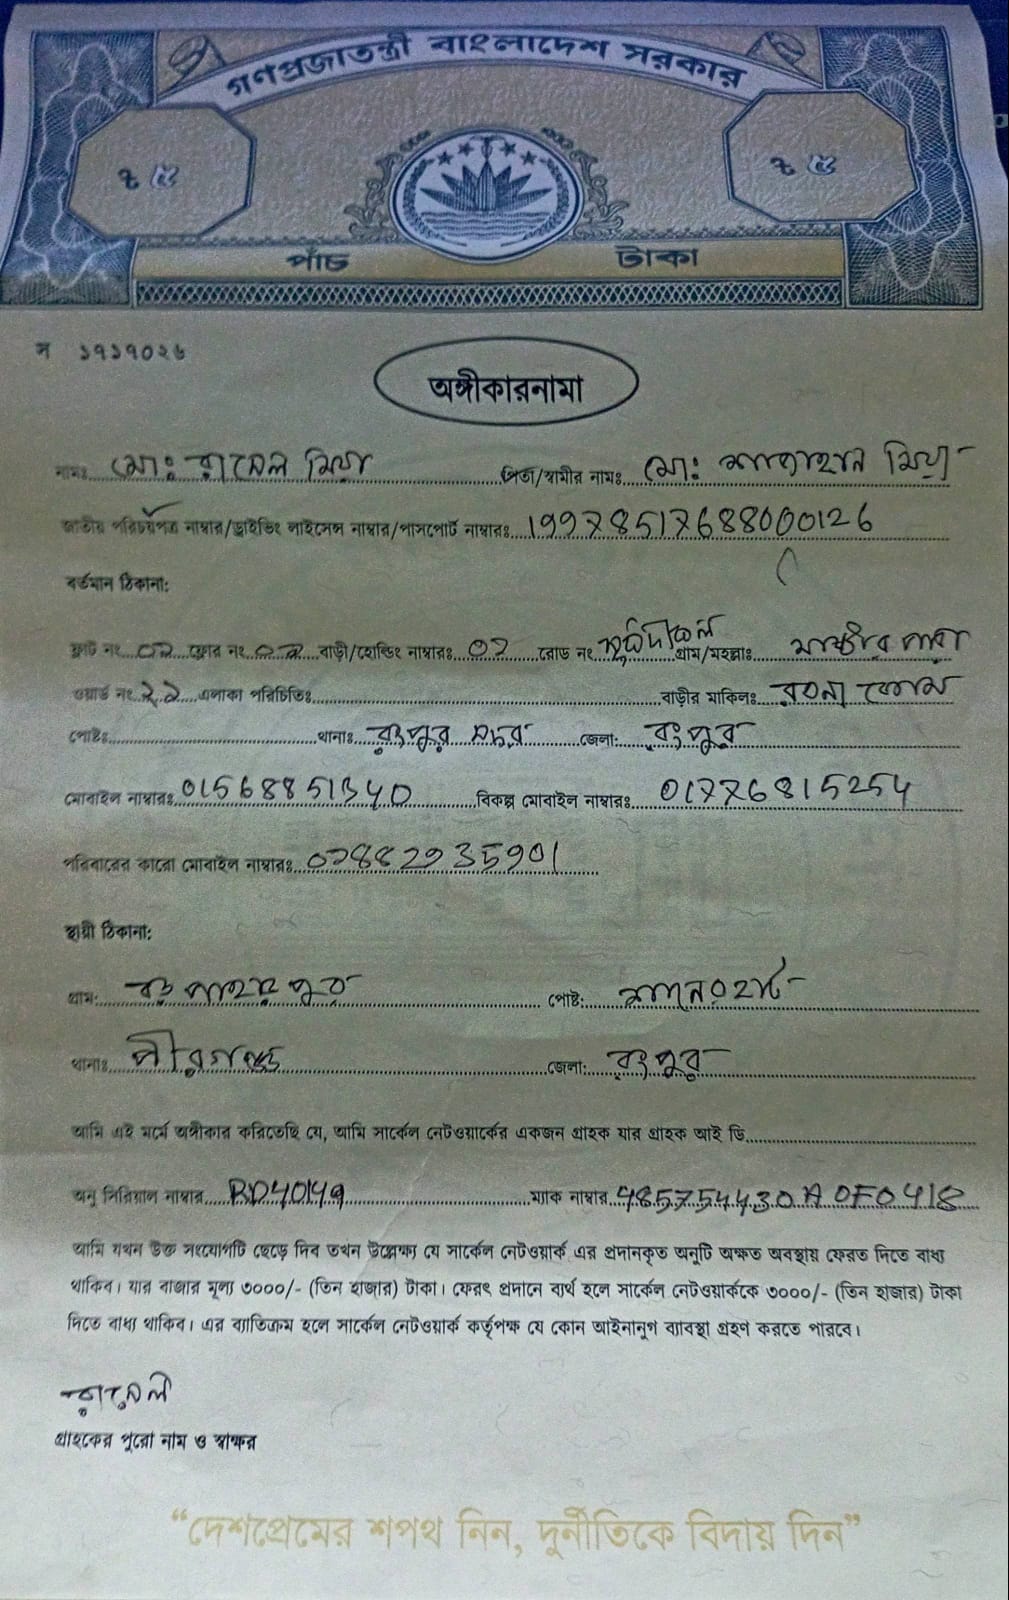 গণপ্রজাতন্ত্রী বাংলাদেশ সরকার
৳ ৫ ৳ ৫
পাঁচ টাকা
ন ১৭১৭০২৬
অঙ্গীকারনামা
নামঃ মোঃ রাসেল মিয়া পিতা/স্বামীর নামঃ মোঃ শাজাহান মিয়া
জাতীয় পরিচয়পত্র নাম্বার/ড্রাইভিং লাইসেন্স নাম্বার/পাসপোর্ট নাম্বারঃ 19978517688000126
বর্তমান ঠিকানা:
ফ্লাট নং ফ্লোর নং বাড়ী/হোল্ডিং নাম্বারঃ রোড নং গ্রাম/মহল্লাঃ
ওয়ার্ড নং এলাকা পরিচিতিঃ বাড়ীর মালিকঃ
পোষ্টঃ থানাঃ রংপুর সদর জেলা: রংপুর
মোবাইল নাম্বারঃ 01568851340 বিকল্প মোবাইল নাম্বারঃ 01776815254
পরিবারের কারো মোবাইল নাম্বারঃ
স্থায়ী ঠিকানা:
গ্রাম: পোষ্ট:
থানাঃ পীরগঞ্জ জেলা: রংপুর
আমি এই মর্মে অঙ্গীকার করিতেছি যে, আমি সার্কেল নেটওয়ার্কের একজন গ্রাহক যার গ্রাহক আই ডি
অনু সিরিয়াল নাম্বার RD40149 ম্যাক নাম্বার 485754430A0F0418
আমি যখন উক্ত সংযোগটি ছেড়ে দিব তখন উল্লেক্ষ্য যে সার্কেল নেটওয়ার্ক এর প্রদানকৃত অনুটি অক্ষত অবস্থায় ফেরত দিতে বাধ্য
থাকিব। যার বাজার মূল্য ৩০০০/- (তিন হাজার) টাকা। ফেরৎ প্রদানে ব্যর্থ হলে সার্কেল নেটওয়ার্ককে ৩০০০/- (তিন হাজার) টাকা
দিতে বাধ্য থাকিব। এর ব্যাতিক্রম হলে সার্কেল নেটওয়ার্ক কর্তৃপক্ষ যে কোন আইনানুগ ব্যাবস্থা গ্রহণ করতে পারবে।
রাসেল
গ্রাহকের পুরো নাম ও স্বাক্ষর
“দেশপ্রেমের শপথ নিন, দুর্নীতিকে বিদায় দিন”